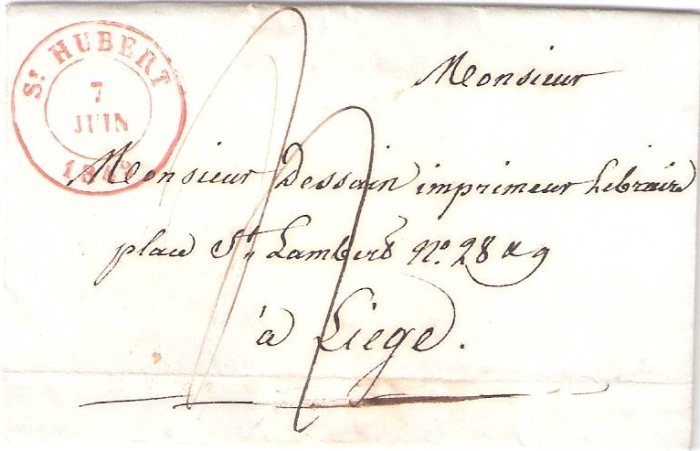 St HUBERT
7
JUIN
Monsieur
Monsieur Dessain imprimeur Libraire
place St Lambert No. 28 & 9
à Liege.